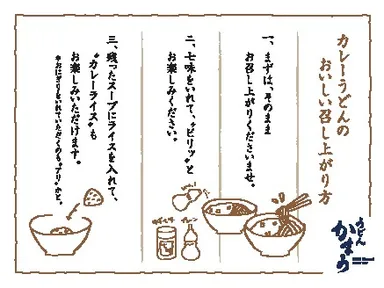 カレーうどんの
おいしい召し上がり方
一、まずは、そのまま
お召し上がりくださいませ。
二、七味をいれて、〝ピリッ〟と
お楽しみください。
三、残ったスープにライスを入れて、
〝カレーライス〟も
お楽しみいただけます。
※おにぎりをいれていただくのも〝アリ〟かと。
うどん